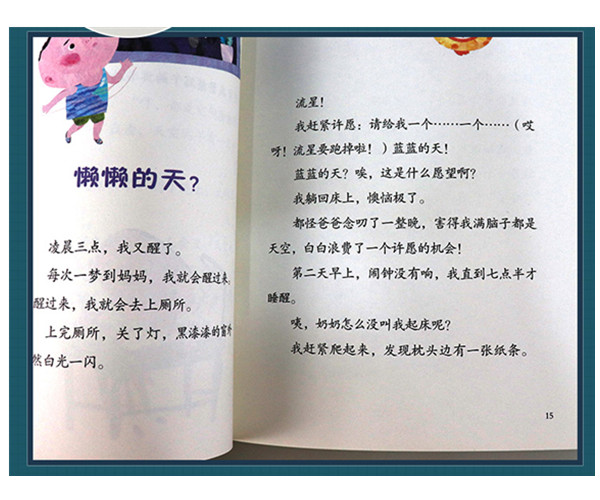 懒懒的天？
凌晨三点，我又醒了。
每次一梦到妈妈，我就会醒过来。
醒过来，我就会去上厕所。
上完厕所，关了灯，黑漆漆的窗外
然白光一闪。
流星！
我赶紧许愿：请给我一个……一个……（哎
呀！流星要跑掉啦！）蓝蓝的天！
蓝蓝的天？唉，这是什么愿望啊？
我躺回床上，懊恼极了。
都怪爸爸念叨了一整晚，害得我满脑子都是
天空，白白浪费了一个许愿的机会！
第二天早上，闹钟没有响，我直到七点半才
睡醒。
咦，奶奶怎么没叫我起床呢？
我赶紧爬起来，发现枕头边有一张纸条。
15